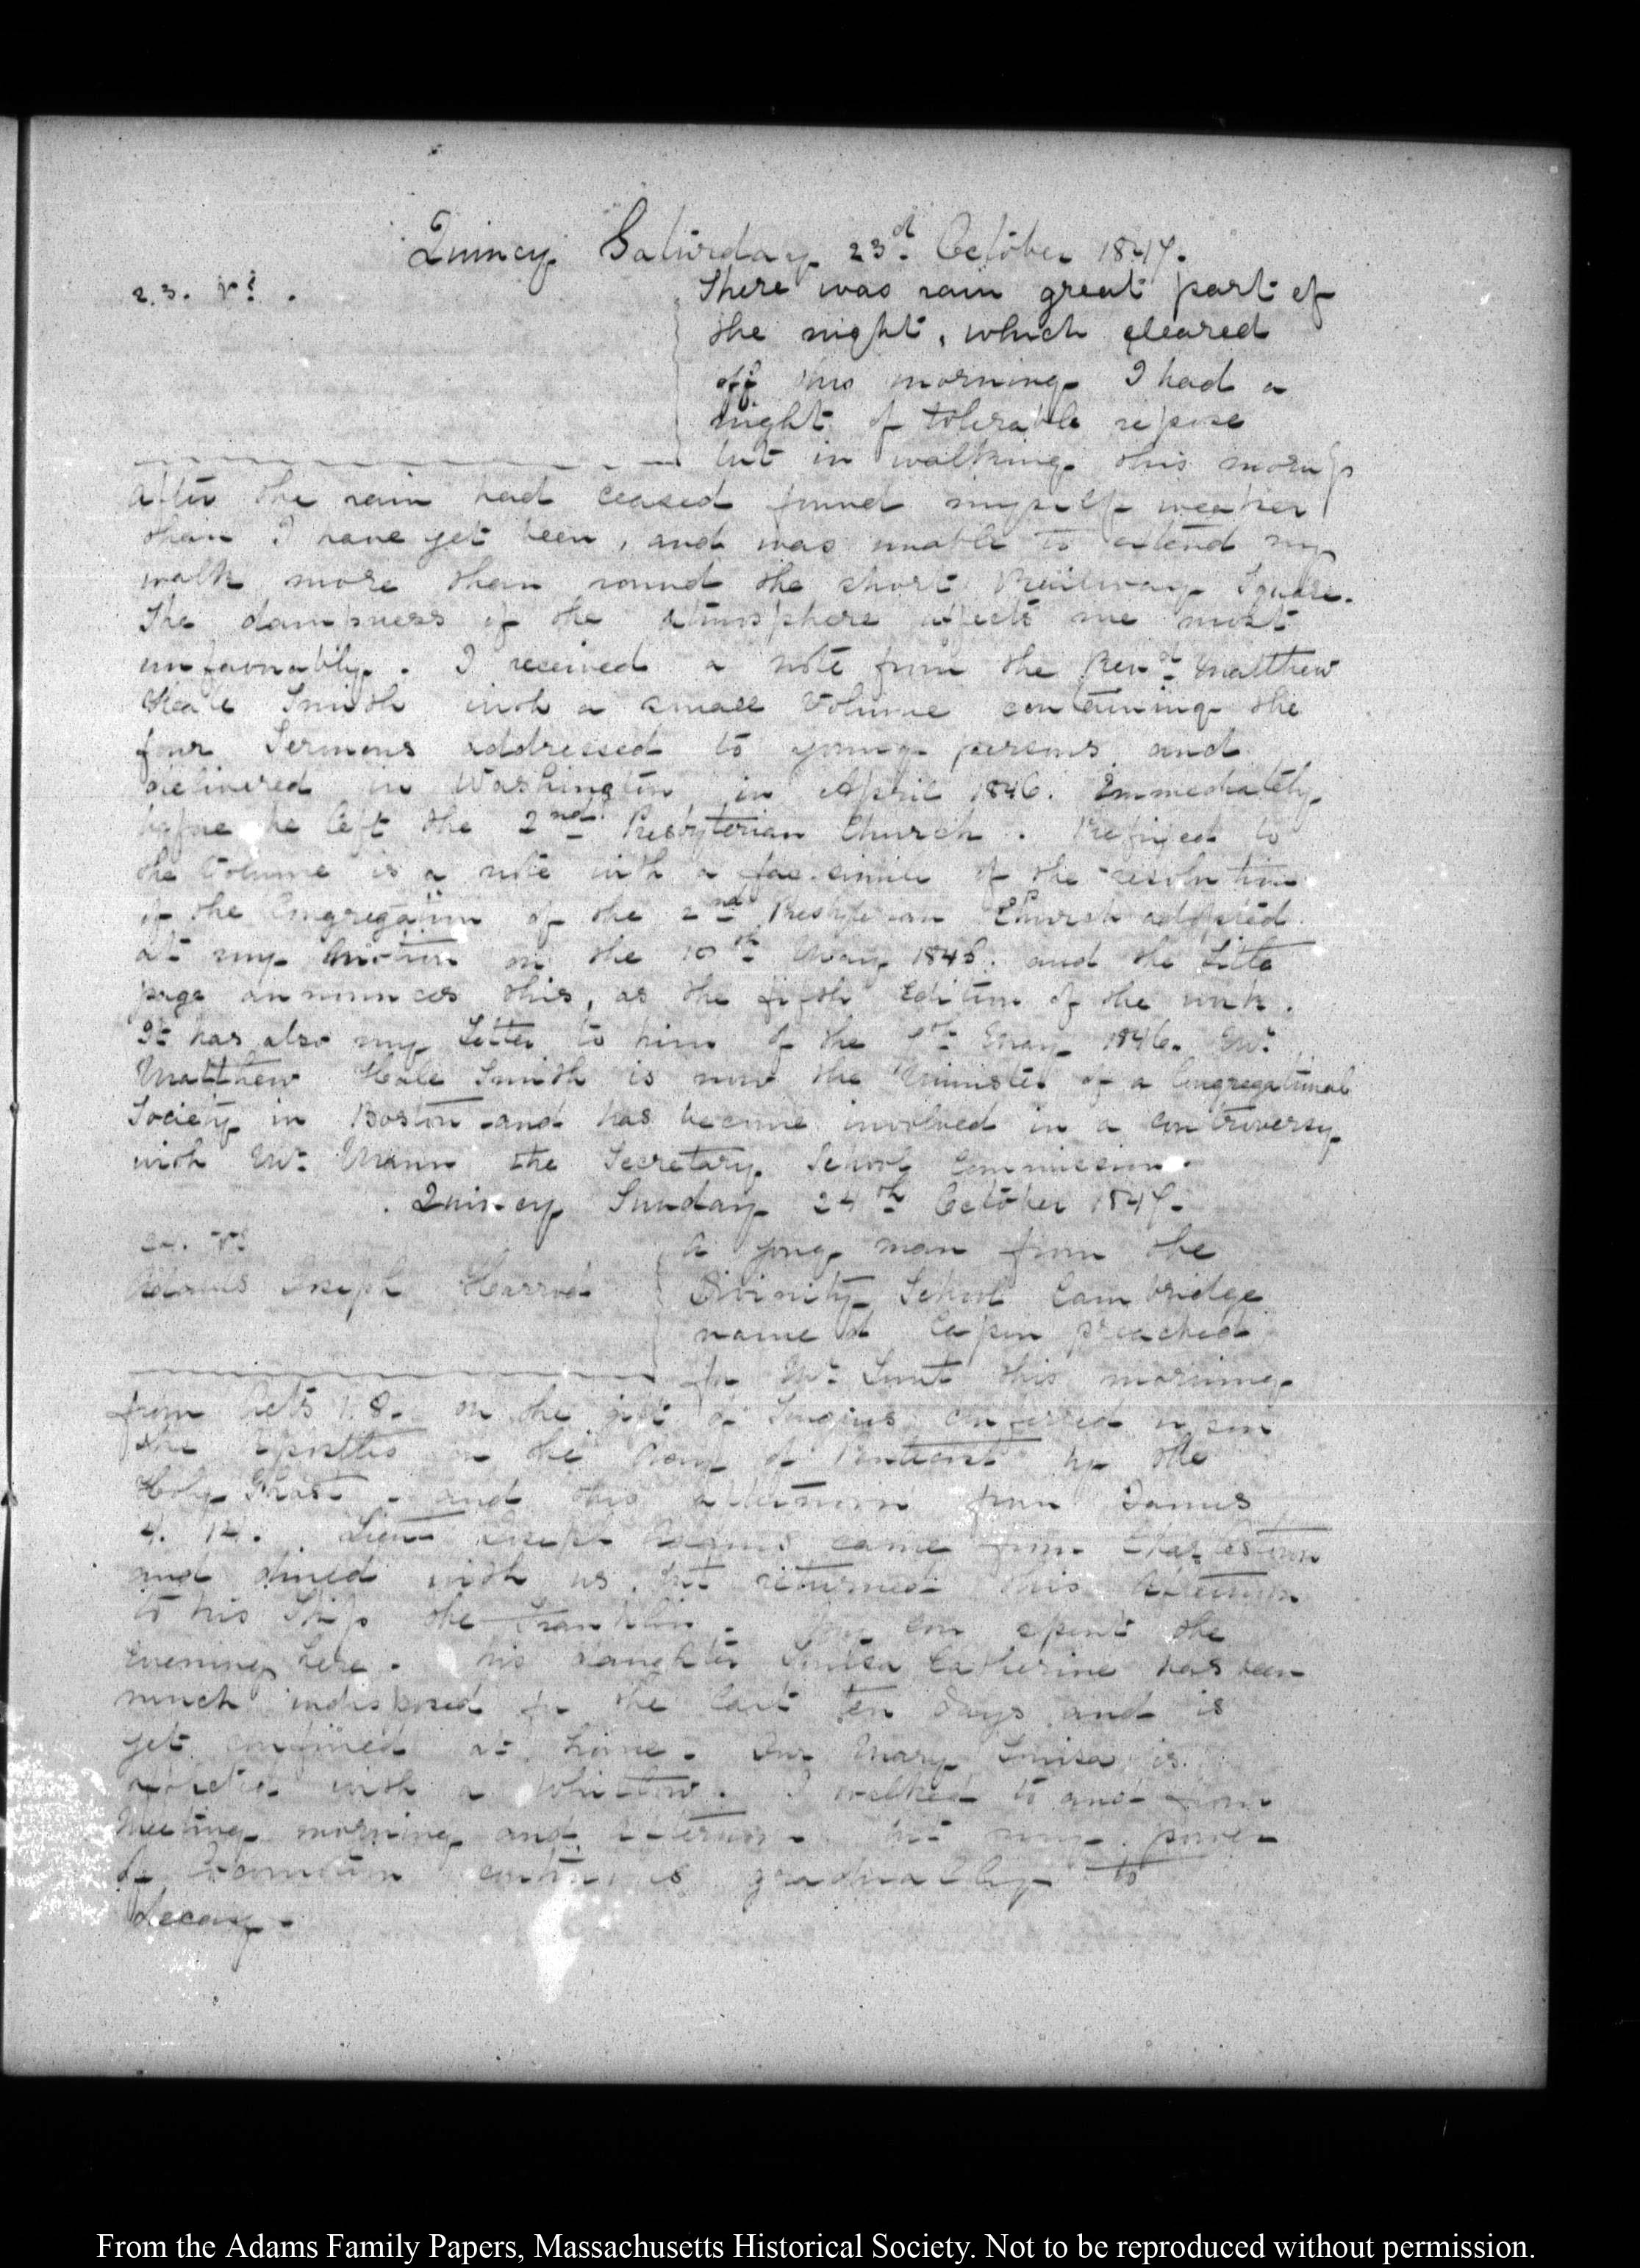 Quincy Saturday 23d. October 1847.
23.
There was rain great part of
the night, which cleared
off this morning. I had a
night of tolerable repose
but in walking this morng
after the rain had ceased found myself weaker
than I have yet been, and was unable to extend my
walk more than round the short Railway Square.
The dampness of the atmosphere affects me most
unfavorably. I received a note from the Revd. Matthew
Hale Smith with a small volume containing the
four Sermons addressed to young persons and
delivered in Washington in April 1846. Immediately
before he left the 2nd Presbyterian Church. Prefixed to
the Volume is a note with a fac-simile of the resolution
of the Congregation of the 2nd Presbyterian Church adopted
at my motion on the 10th May 1846. and the title
page announces this, as the fifth Edition of the work.
It has also my Letter to him of the May 1846. Mr.
Matthew Hale Smith is now the Minister of a Congregational
Society in Boston and has become involved in a controversy
with Mr. Mann the Secretary School Commission.
Quincy Sunday 24th October 1847.
Adams Joseph Harrod
A young man from the
Divinity School Cambridge
named Capen preached
for Mr. Lunt this morning
from Acts 1.8. on the gift of Tongues conferred upon
the Apostles on the day of Pentecost by the
Holy Ghost. and this afternoon from James
4. 14. Lieut Joseph Adams came from Charlestown
and dined with us. but returned this afternoon
to his Ship the Franklin. My son spent the
evening here. his daughter Louisa Catherine has been
much indisposed for the last ten days and is
yet confined at home. Our Mary Louisa is
afflicted with a Whitlow. I walked to and from
Meeting morning and afternoon. but my power
of locomotion continues gradually to
decay.